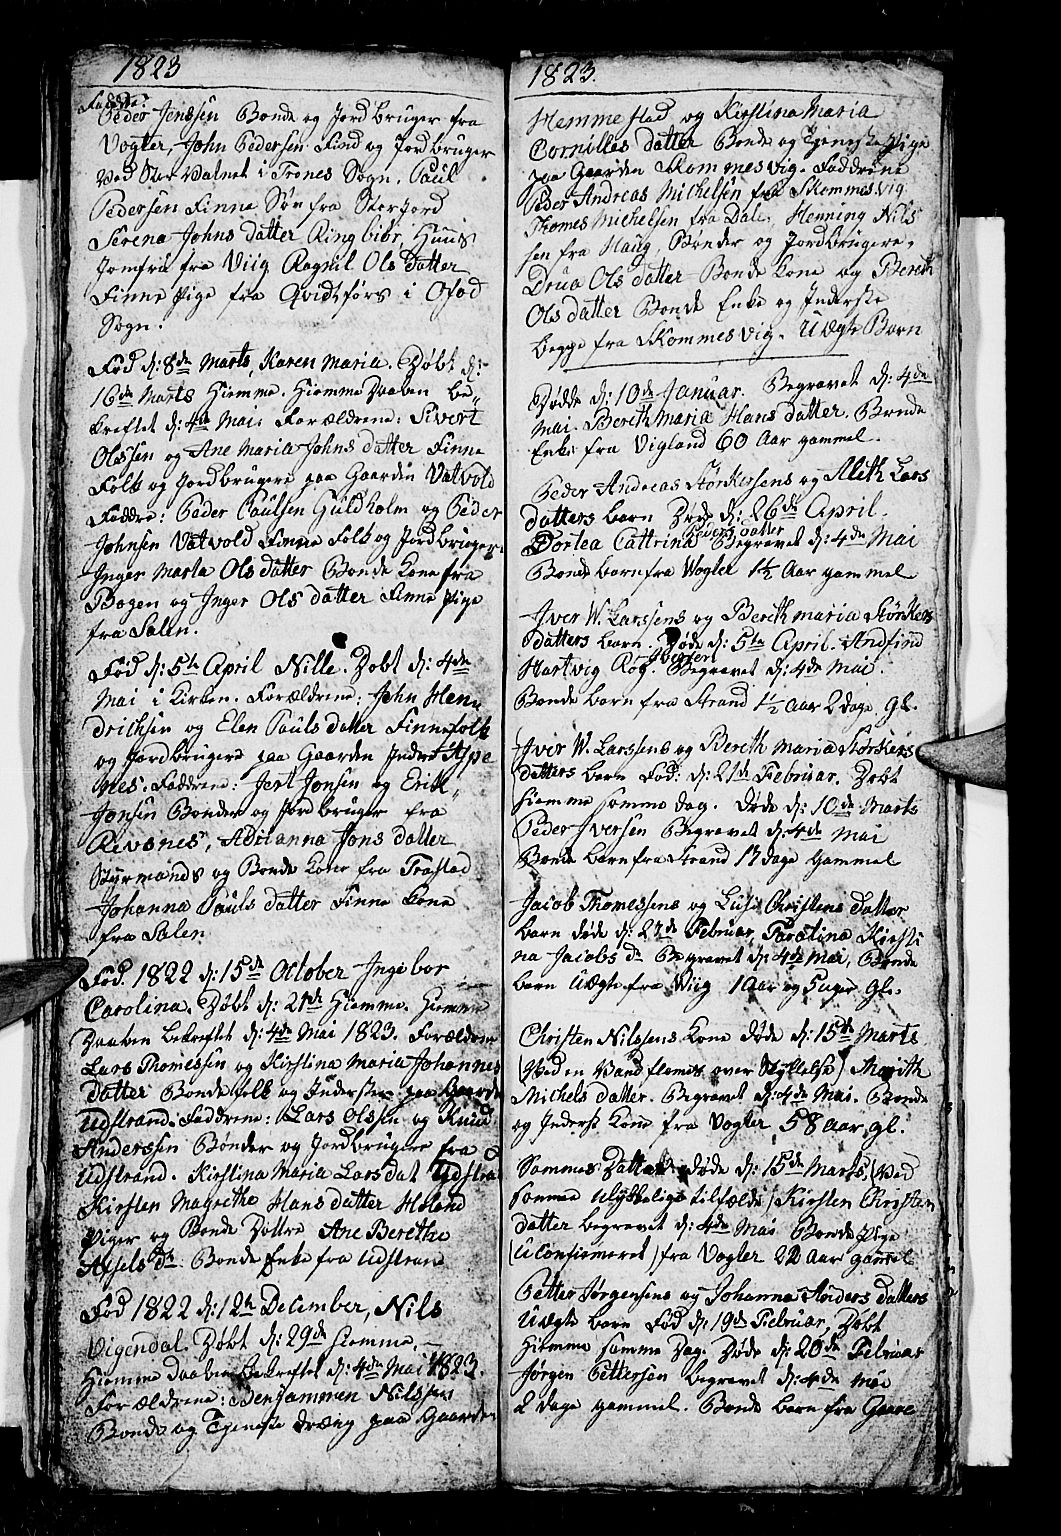 1823
Faddre:
Peder Jenssen Bonde og Jord bruger fra
Vogter, John Pedersen Find og Jord bruger
Ved Stor Vatnet i Trones Sogn. Paul
Pedersen Finne Søn fra Storjord
Serena Johns datter Ring bibr, Huus
Jomfru fra Viig Ragnil Ols datter
Finne Pige fra Qvidtførs i Ofod
Sogn.
Fød d: 8de Marts, Karen Maria. Døbt d:
16de Marts Hiemme. Hiemme Daaben be-
kreftet d: 4de Mai: Forældrene: Sivert
Olssen og Ane Maria Johns datter Finne
Folk og Jordbrugere paa Gaarden Vatvold
Faddre: Peder Paulsen Guldholm og Peder
Johnsen Vatvold Finne Folk og Jordbrugere
Inger Marta Ols datter Bonde Kone fra
Bogen og Inger Ols datter Finne Pige
fra Salen.
Fød d: 5te April Nille. Døbt d: 4de
Mai i Kirken. Forældrene: John Hen-
drichsen og Elen Pauls datter Finne folk
og Jordbrugere paa Gaarden Inderst Aspe
nes. Faddrene: Jort Jonsen og Erik
Jonsen Bonder og Jord bruger fra
Revsnes, Adrianna Jons datter
Styrmands og Bonde Koner fra Trastad
Johanna Pauls datter Finne Kone
fra Salen
Fød. 1822 d: 15de October Ingebor
Carolina. Døbt d: 21de Hiemme. Hiemme
Daaben bekreftet d: 4de Mai 1823. Forældrene
Lars Thomessen og Kirstina Maria Johannes
datter Bonde folk og Inderster paa Gaarden
Udstrand. Faddrene: Lars Olssen og Knud
Anderssen Bønder og Jordbrugere fra
Udstrand. Kirstina Maria Lars dat Udstrand
Kirsten Magrethe Hans datter Holand
Piger og Bonde Døttre Ane Berethe
Axels dr. Bonde Enke fra Udstrand
Fød 1822 d: 12te December, Nils
Vigendal. Døbt d: 29de Hiemme,
Hiemme daaben bekreftet d: 4de Mai 1823.
Forældrene: Benjammen Nilssen
Bonde og Tjeneste dræng paa Gaarden
1823.
Hemmestad og Kirstina Maria
Cornilles datter Bonde og Tjeneste Pige
paa Gaarden Skommesvig. Faddrene
Peder Andreas Michelsen fra Skommesvig
Thomes Michelsen fra Dale, Henning Nils
sen fra Haug, Bønder og Jordbrugere,
Drua Ols datter Bonde Kone og Bereth
Ols datter Bonde Enke og Inderste
begge fra Skommesvig. Uægte Barn
Dødde d: 10de Januar. Begravet d: 4de
Mai. Bereth Maria Hans datter. Bonde
Enke fra Vigland 60 Aar gammel.
Peder Andreas Størkersens og Alith Lars
datters barn Døde d: 26de April.
Peders datter
Dortea Cattrina Begravet d: 4de Mai
Bonde barn fra Vogter 1½ Aar gammel
Iver W. Larssens og Bereth Maria Størkers
datters barn Døde d: 5te April. Andfind
Iversen
Hartvig Rog. Begravet d: 4de Mai.
Bonde barn fra Strand 1½ Aar 2 dage Gl.
Iver W. Larssens og Bereth Maria Størkers
datters barn Fød: d: 21de Februar. Døbt
hiemme samme dag. Døde d: 10de Marts
Peder Iversen Begravet d: 4de Mai
Bonde barn fra Strand 17 dage gammel
Jacob Thomessens og Lusi Christens datter
barn døde d: 27de Februar, Carolina Kirsti
na Jacobs dr. Begravet d: 4de Mai, Bonde
barn Uægte fra Wiig 1 Aar og 5 uger Gl.
Christen Nilssens Kone døde d: 15de Marts
(Ved en Vand flomes over skyllelse) Marith
Michels datter. Begravet d: 4de Mai. Bonde
og Inderst Kone fra Vogter 58 Aar gl.
Sammes Datter døde d: 15de Marts, (Ved
samme Ulykkelige tilfælde) Kirsten Christen
datter begravet d: 4de Mai Bonde Pige
(Uconfirmeret) fra Vogter 22 Aar gammel
Petter Jørgensens og Johanna Anders datters
Uægte barn Fød d: 19de Februar, Døbt
hiemme samme Dag. Døde d: 20de Februar
Jørgen Pettersen begravet d: 4de Mai
2 dage gammel. Bonde barn fra Gaare